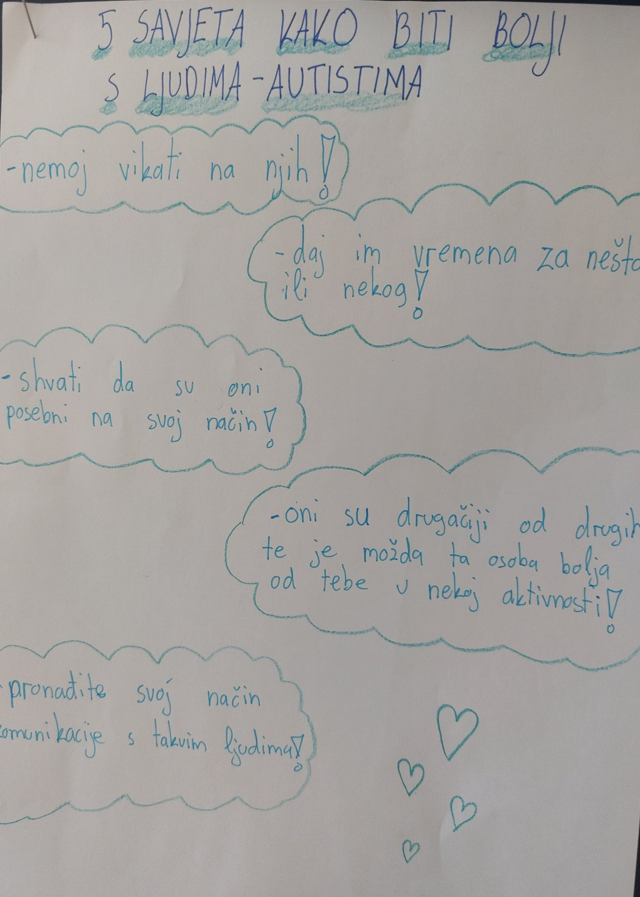 5 SAVJETA KAKO BITI BOLJI
S LJUDIMA-AUTISTIMA
-nemoj vikati na njih!
-daj im vremena za nešto
ili nekog!
-shvati da su oni
posebni na svoj način!
-oni su drugačiji od drugih
te je možda ta osoba bolja
od tebe u nekoj aktivnosti!
-pronađite svoj način
komunikacije s takvim ljudima!